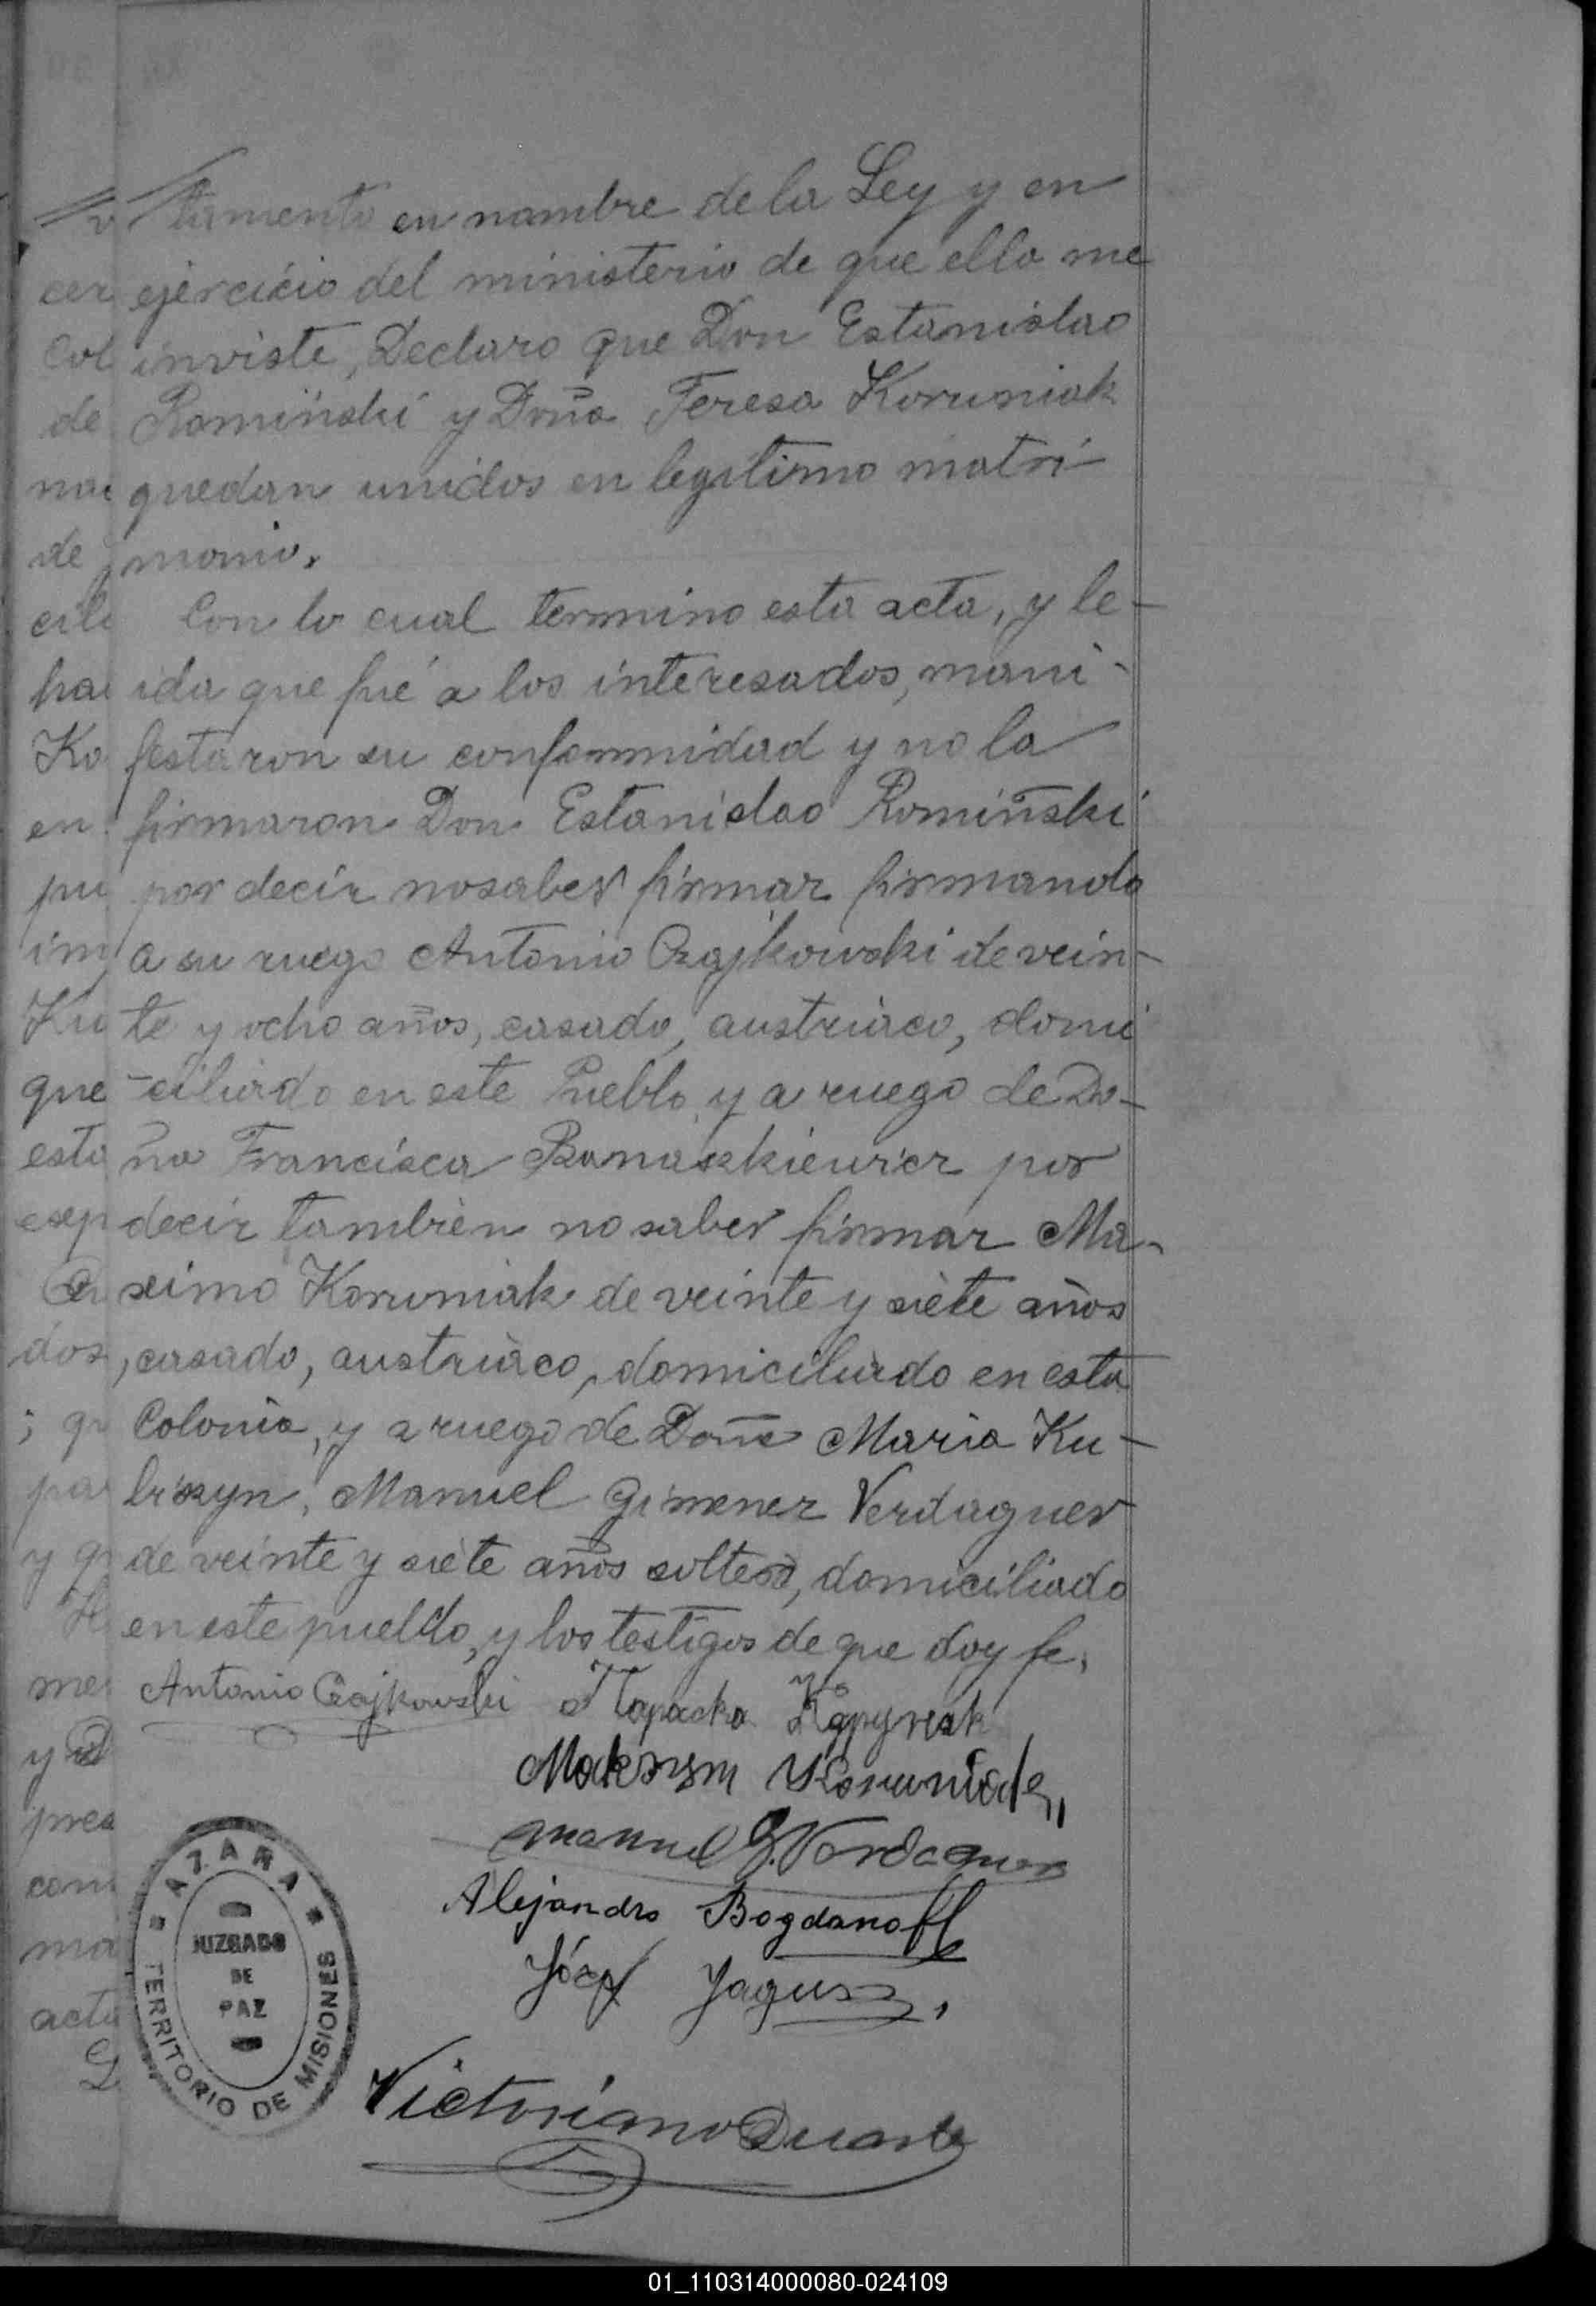 tamente en nombre de la Ley y en
ejercicio del ministerio de que ella me
inviste, Declaro que Don Estanislao
Romiński y Doña Teresa Koruniak
quedan unidos en legitimo matri-
monio.
Con lo cual termino esta acta, y le-
ida que fué a los interesados, mani-
festaron su conformidad y no la
firmaron Don Estanislao Romiński
por decir no saber firmar firmando
a su ruego Antonio Czajkowski de vein-
te y ocho años, casado, austriaco, domi
-ciliado en este Pueblo, y a ruego de Do-
ña Francisca Banaszkiewicz por
decir también no saber firmar Ma-
ximo Koruniak de veinte y siete años
, casado, austriaco, domiciliado en esta
Colonia, y a ruego de Doña Maria Ku-
liszyn, Manuel Gimenez Verdaguer
de veinte y siete años soltero, domiciliado
en este pueblo, y los testigos de que doy fe.
Antonio Czajkowski
Maksym Koruniak
Manuel G. Verdaguer
Alejandro Bogdanoff
Józef Jagusz
Victoriano Duarte
AZARA
JUZGADO
DE
PAZ
TERRITORIO DE MISIONES
01_110314000080-024109